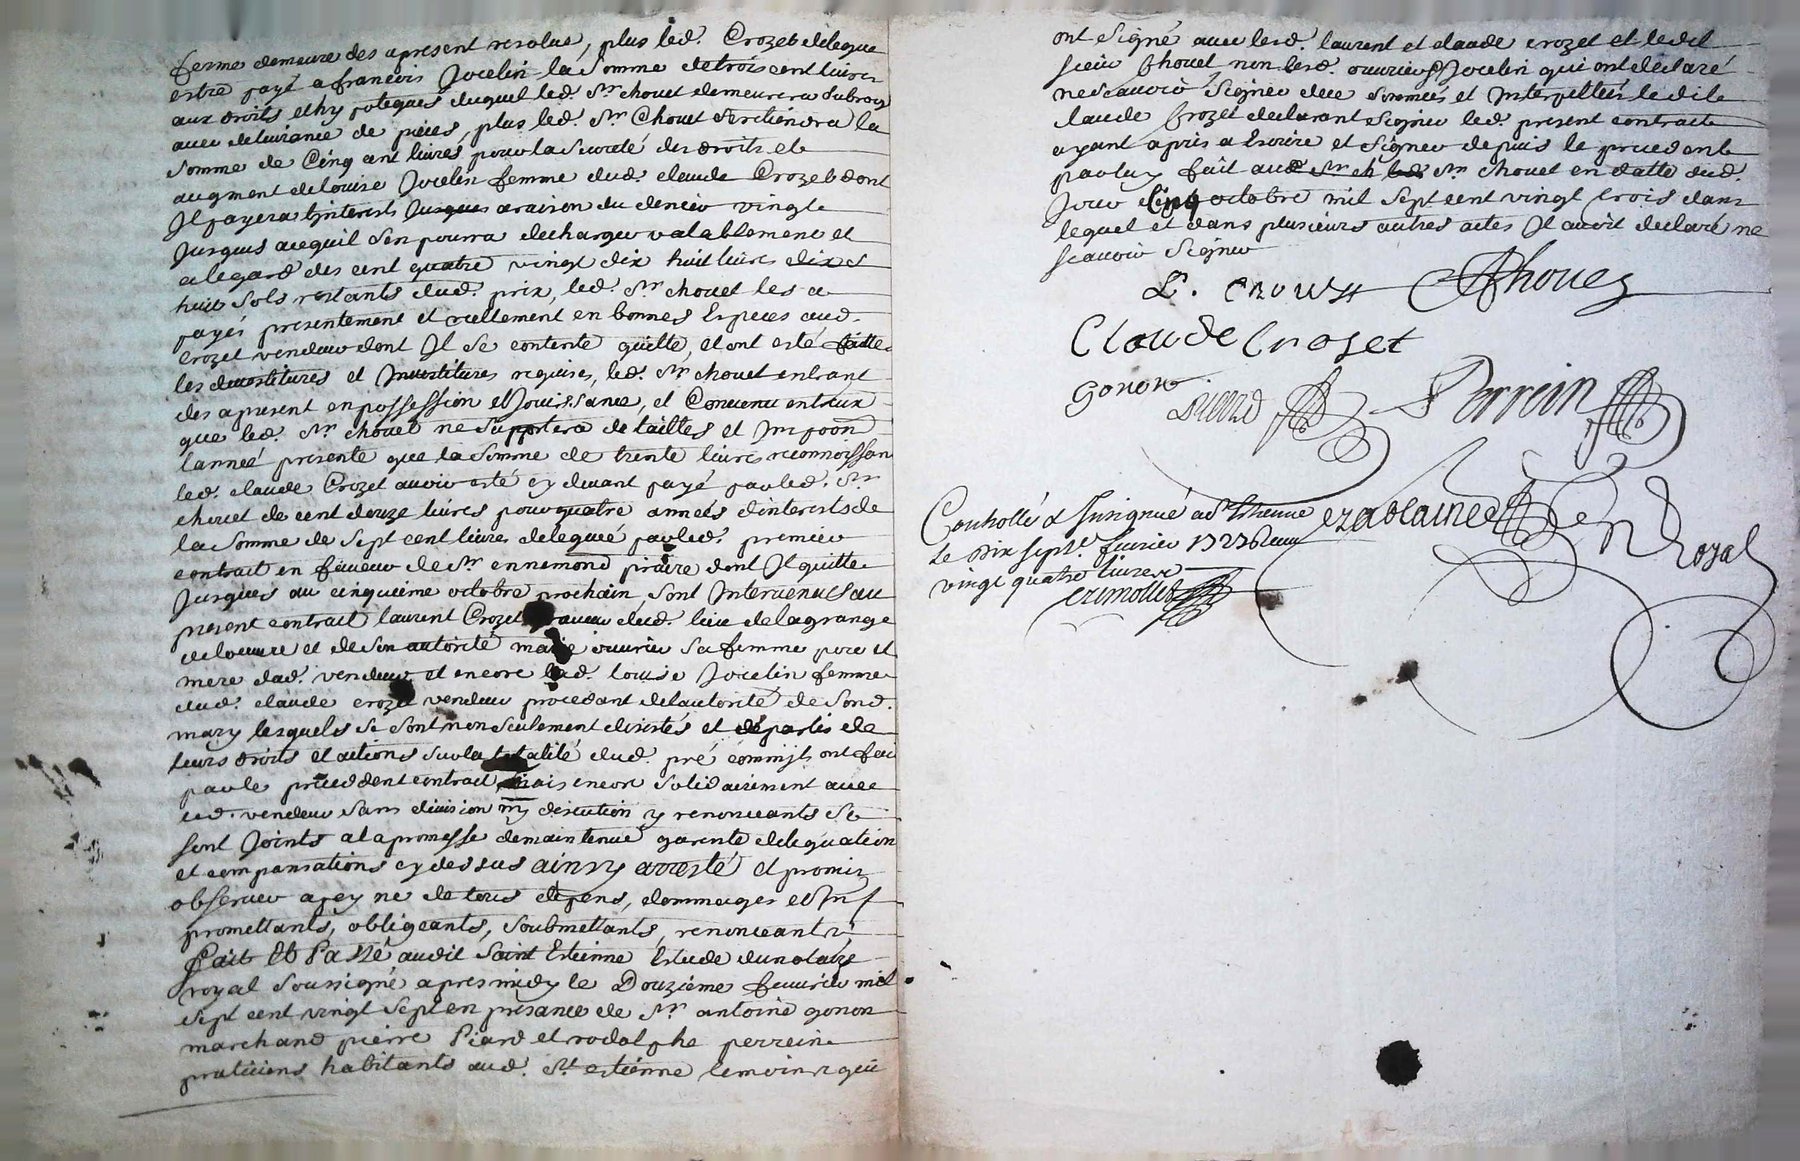 ferme demeure des apresent resolue, plus led. Crozet delegue
estre payé a francois Jocelin la somme de trois cent livres
aux droits et hypoteques duquel led. Sr. chouet demeurera subrogé
avec delivrance de pieces, plus led. Sr. Chouet Sretiendra la
somme de Cinq cent livres pour la Sureté des droits et
augment de louise Jocelin femme dud. claude Crozet dont
Il payera linterest Jusques a raison du denier vingt
Jusques acequil S'en pourra decharger valablement et
a legard des cent quatre vingt dix huit livres dix et
huit Sols restants dud. prix, led. Sr. chouet les a
payés presentement et reellement en bonnes Especes aud.
Crozet vendeur dont Il se contente quitte, et ont esté faittes
les devestitures et Investitures requises, led. Sr. chouet entrant
des apresent en possession et Jouissance, et Convenu entreux
que led. Sr. chouet ne Supportera de tailles et Impoon
lanneé presente que la Somme de trente livres reconnoissan
led. claude Crozet avoir esté cy devant payé par led. Sr.
chouet de cent douze livres pour quatre anneés d'interests de
la Somme de Sept cent livres deleguée par led. premier
contrait en faveur de Sr. ennemond praire dont Il quitte
Jusques au cinquieme octobre prochain, sont Intervenus au
present contrait laurent Crozet dud. lieu de la grange
de loeuvre et de Son autorité marie ouvrier sa femme pere et
mere dud. vendeur et encore lad. louise Jocelin femme
dud. claude crozet vendeur procedant de lautorité de Sond.
mary lesquels se Sont non Seulement devestés et departis de
leurs droits et actions Sur la totalité dud. pré comm'ils ont fai
par le precedent contrait, mais encore Solidairement avec
led. vendeur Sans division ny discution y renonceants Se
Sont Joints a la promesse de maintenue garentie delegation
et compansations cy dessus ainsy arresté et promis
observer a peyne de tous depens, dommages et Inst
promettants, obligeants, Soubmettants, renonceants
fait Et Passé audit Saint Estienne Estude du notaire
royal Soussigné apresmidy le Douzieme fevrier mil
Sept cent vingt Sept en presance de Sr. antoine gonon
marchand pierre Piard et rodolphe perrein
praticiens habitants aud. St estienne temoins qui
ont Signé avec lesd. laurent et claude crozet et ledit
Sieur Chouet non lesd. ouvrier et Jocelin qui ont declaré
ne Scavoir Signer dee Sommés et Interpellés ledit
claude Crozet declarant Signer led. present contrait
ayant apris a Escrire et Signer depuis le precedent
par luy fait aud. Sr. chouet en datte dud.
Jour Cinq octobre mil Sept cent vingt trois dans
lequel et dans plusieurs autres actes Il avoit declaré ne
scavoir Signer
L. Crouzet Chouet
Claude Croset
gonon
Pierrd Perrein
Conhollé & Insignué a St Estienne
le dix sept fevrier 1727
vingt quatre livres